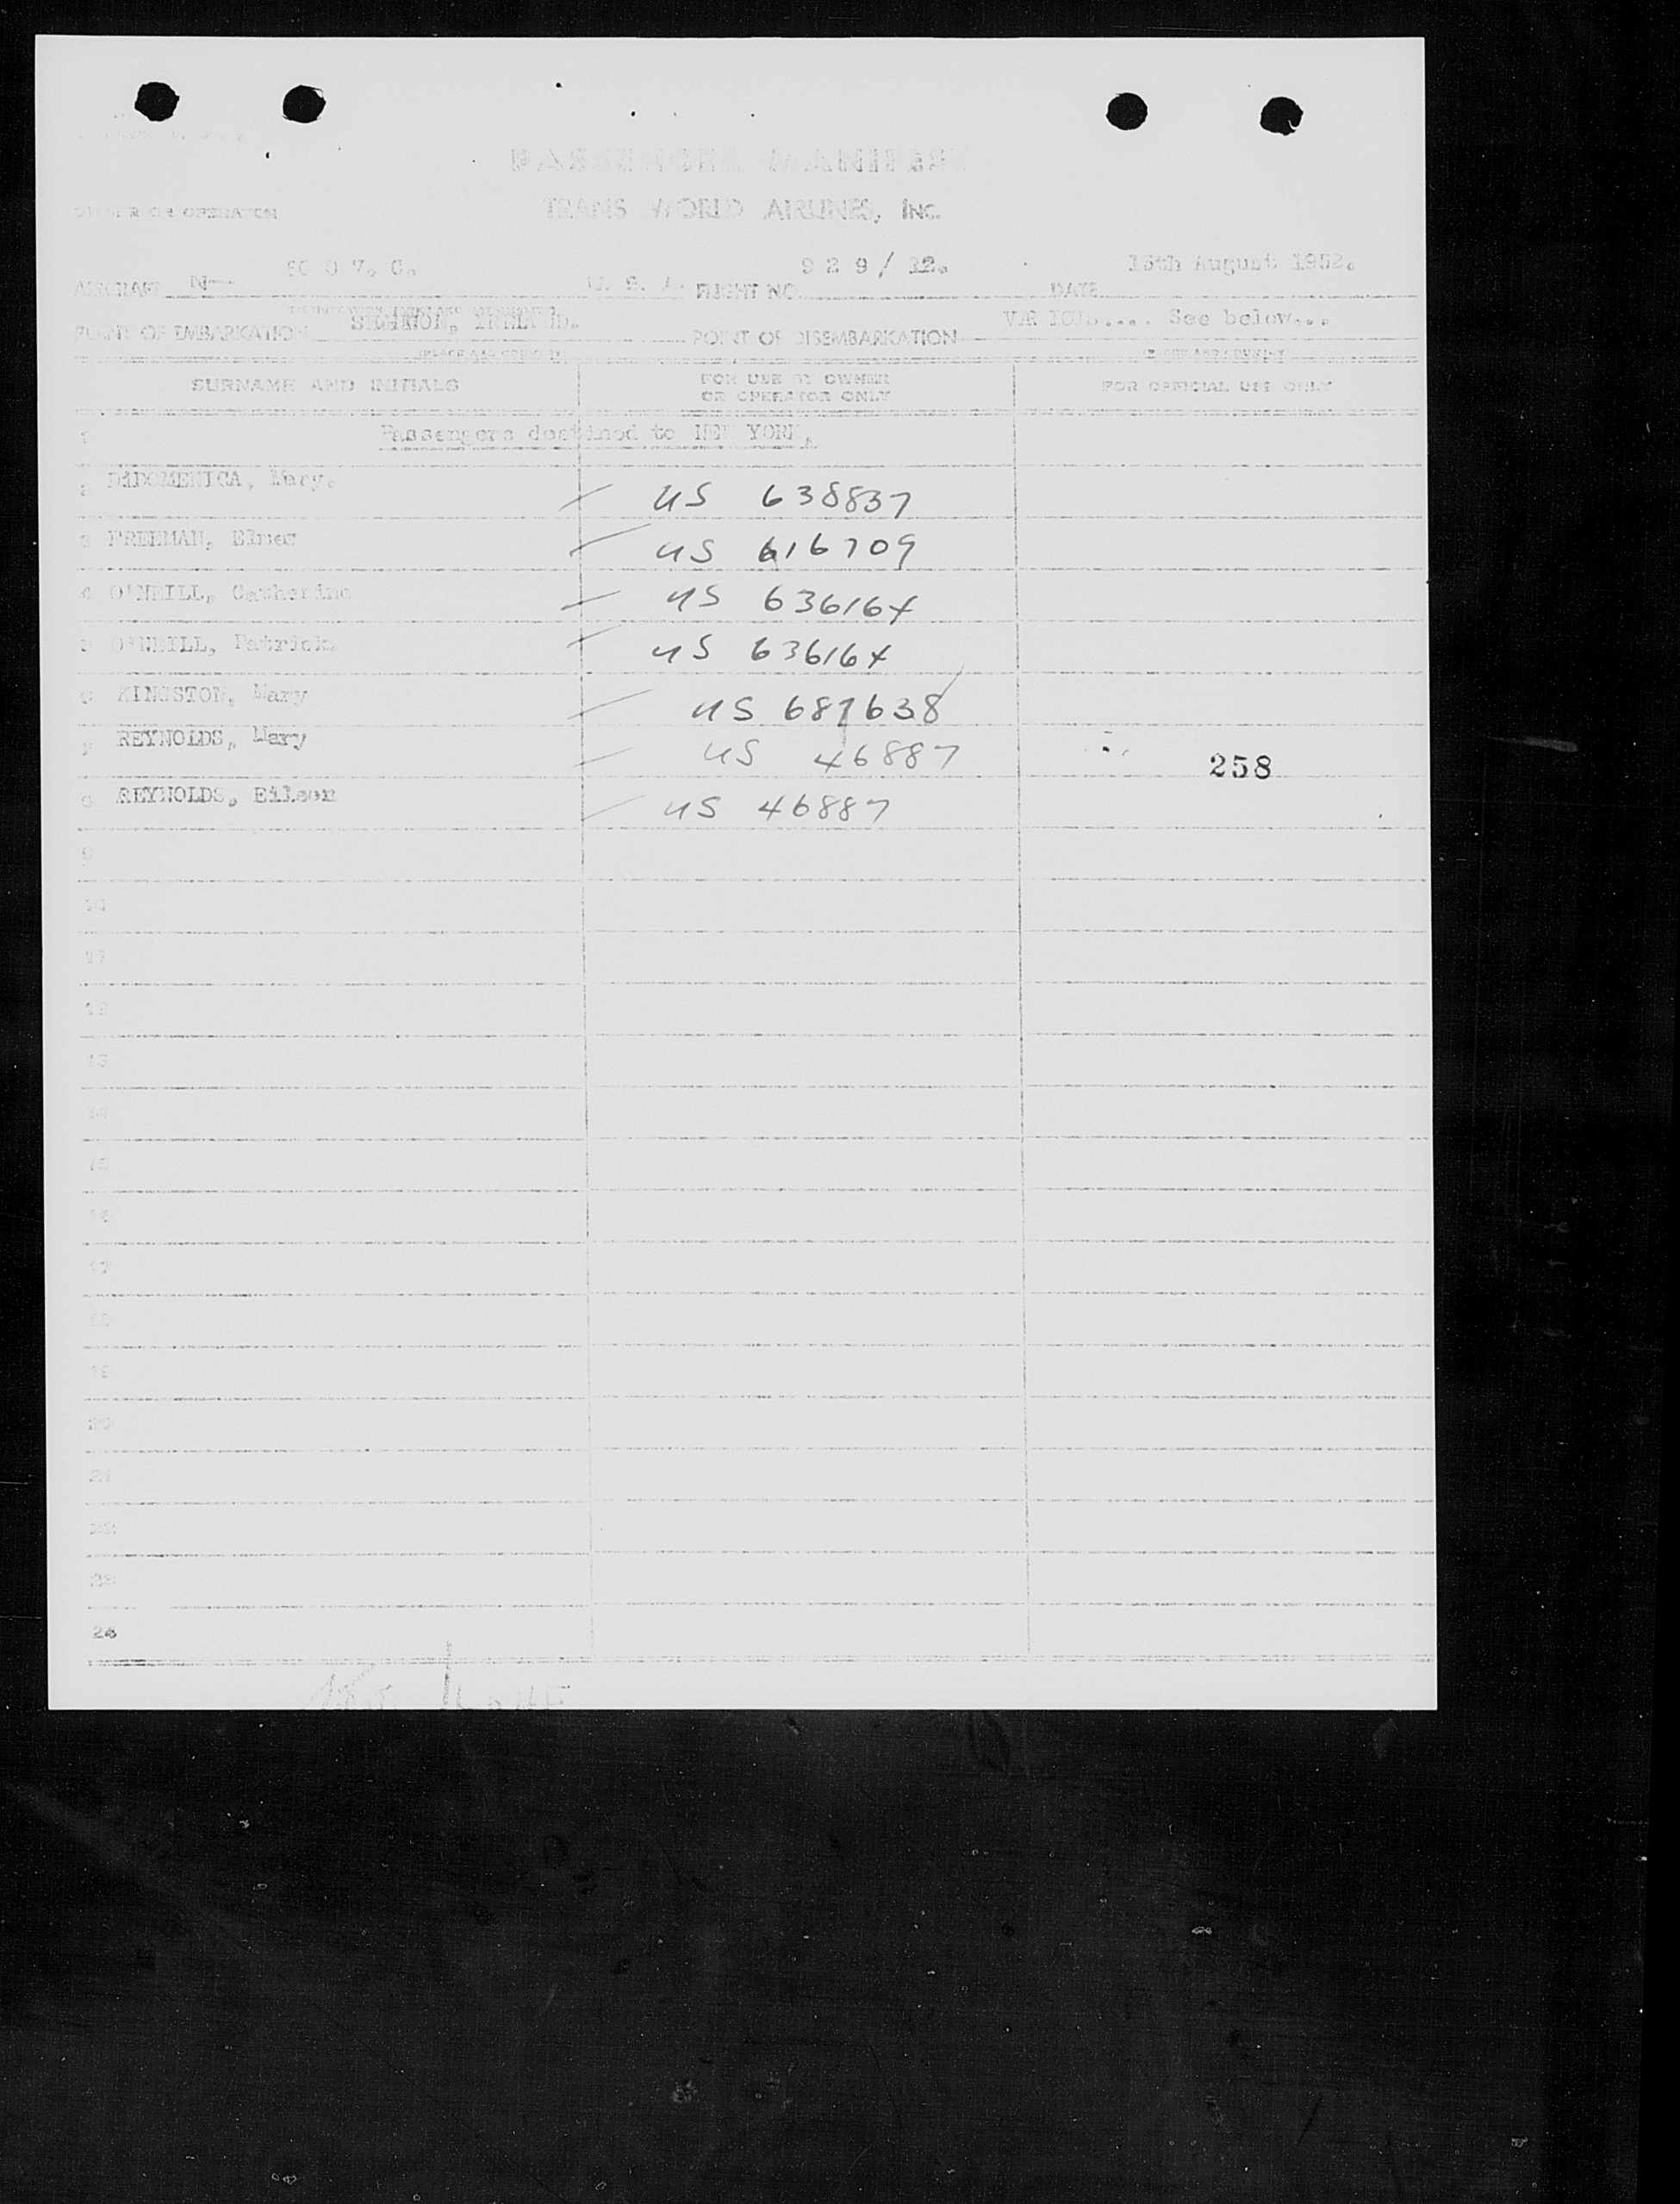 PASSENGER MANIFEST
OWNER OR OPERATOR TRANS WORLD AIRLINES, INC.
AIRCRAFT N-- 60 0 7. C. U. S. A. FLIGHT NO. 9 2 9 / 12. DATE 15th August 1952.
POINT OF EMBARKATION SHANNON, IRELAND. POINT OF DISEMBARKATION VARIOUS.... See below...
(PLACE AND COUNTRY) (PLACE AND COUNTRY)
SURNAME AND INITIALS FOR USE BY OWNER OR OPERATOR ONLY FOR OFFICIAL USE ONLY
1 Passengers destined to NEW YORK.
2 DiDOMENICA, Mary. US 638837
3 FREEMAN, Elmer US 616709
4 O'NEILL, Catherine US 636164
5 O'NEILL, Patrick. US 636164
6 KINGSTON, Mary US 687638
7 REYNOLDS, Mary US 46887 258
8 REYNOLDS, Eileen US 46887
9
10
11
12
13
14
15
16
17
18
19
20
21
22
23
24